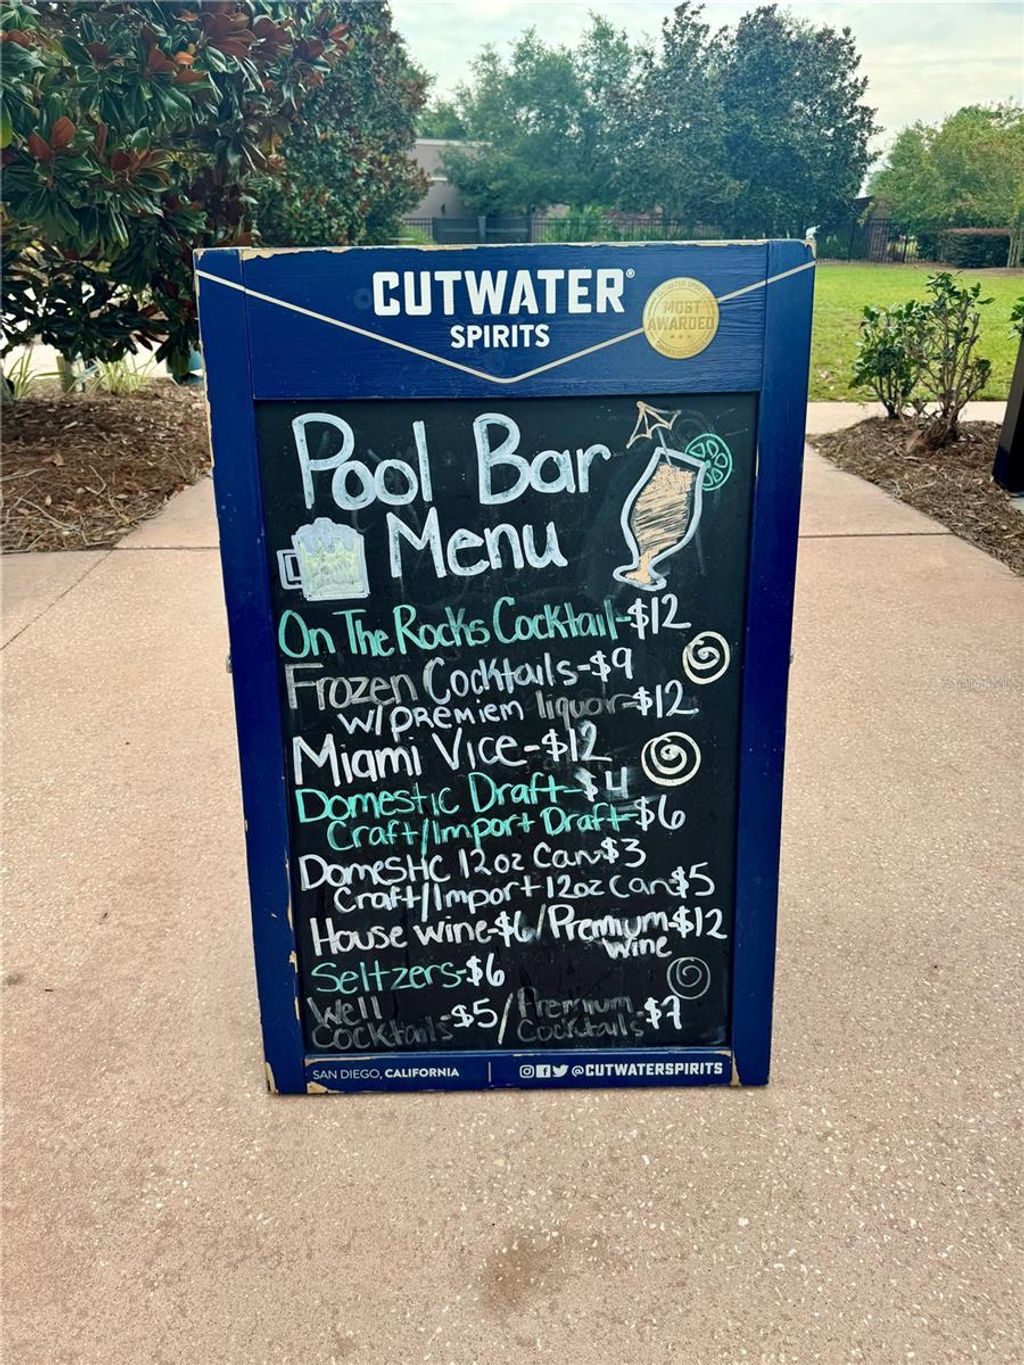 CUTWATER®
SPIRITS
MOST
AWARDED
Pool Bar
Menu
On The Rocks Cocktail-$12
Frozen Cocktails-$9
w/premiem liquor-$12
Miami Vice-$12
Domestic Draft-$4
Craft/Import Draft-$6
Domestic 12oz Can-$3
Craft/Import 12oz can-$5
House wine-$6/Premium-$12
wine
Seltzers-$6
Well
Cocktails-$5/Premium
Cocktails-$7
SAN DIEGO, CALIFORNIA | @CUTWATERSPIRITS